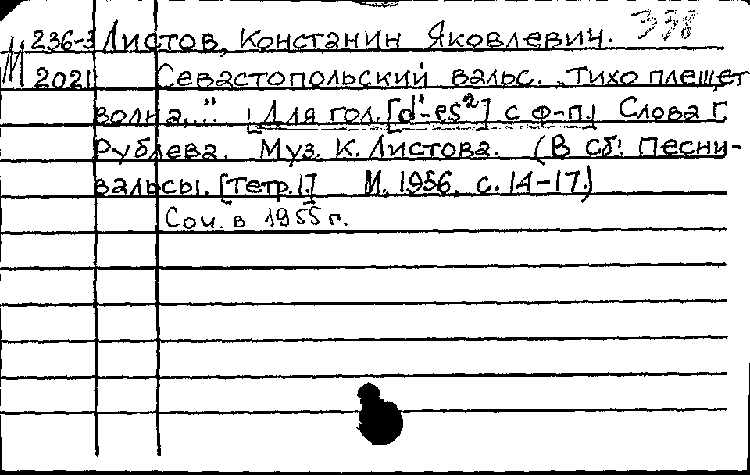 338
М 236-3 Листов, Констанин Яковлевич.
2021 Севастопольский вальс. „Тихо плещет
волна..." [Для гол. [d¹-es²] с ф-п.] Слова Г.
Рублева. Муз. К. Листова. (В сб: Песни-
вальсы. [Тетр.1.] М. 1956. с. 14-17.)
Соч. в 1955 г.